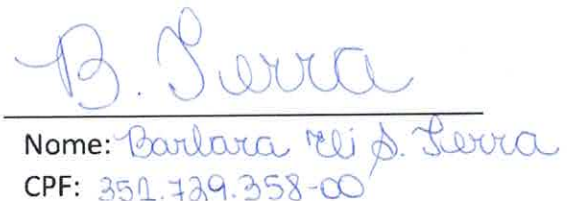 B. Serra
Nome: Barbara Eli S. Serra
CPF: 351.739.358-00